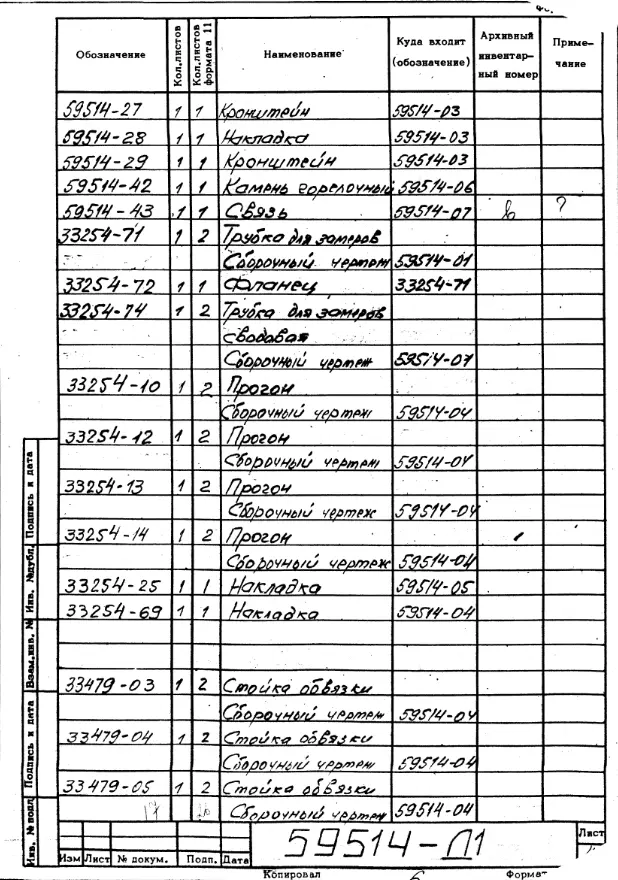 Обозначение Кол.листов Кол.листов формата 11 Наименование Куда входит (обозначение) Архивный инвентарный номер Примечание
59514-27 1 1 Кронштейн 59514-03
59514-28 1 1 Накладка 59514-03
59514-29 1 1 Кронштейн 59514-03
59514-42 1 1 Камень горелочный 59514-06
59514-43 1 1 Связь 59514-07 ?
33254-71 1 2 Трубка для замеров
Сборочный чертеж 59514-01
33254-72 1 1 Фланец 33254-71
33254-74 1 2 Трубка для замеров
сводовая
Сборочный чертеж 59514-07
33254-10 1 2 Прогон
Сборочный чертеж 59514-04
33254-12 1 2 Прогон
Сборочный чертеж 59514-04
33254-13 1 2 Прогон
Сборочный чертеж 59514-04
33254-14 1 2 Прогон
Сборочный чертеж 59514-04
33254-25 1 1 Накладка 59514-05
33254-69 1 1 Накладка 59514-04
33479-03 1 2 Стойка обвязки
Сборочный чертеж 59514-04
33479-04 1 2 Стойка обвязки
Сборочный чертеж 59514-04
33479-05 1 2 Стойка обвязки
17 Сборочный чертеж 59514-04
Инв. № подл. Подпись и дата Взам.инв. № Инв. №дубл. Подпись и дата
59514-Д1
Лист
Изм Лист № докум. Подп. Дата
Копировал Формат